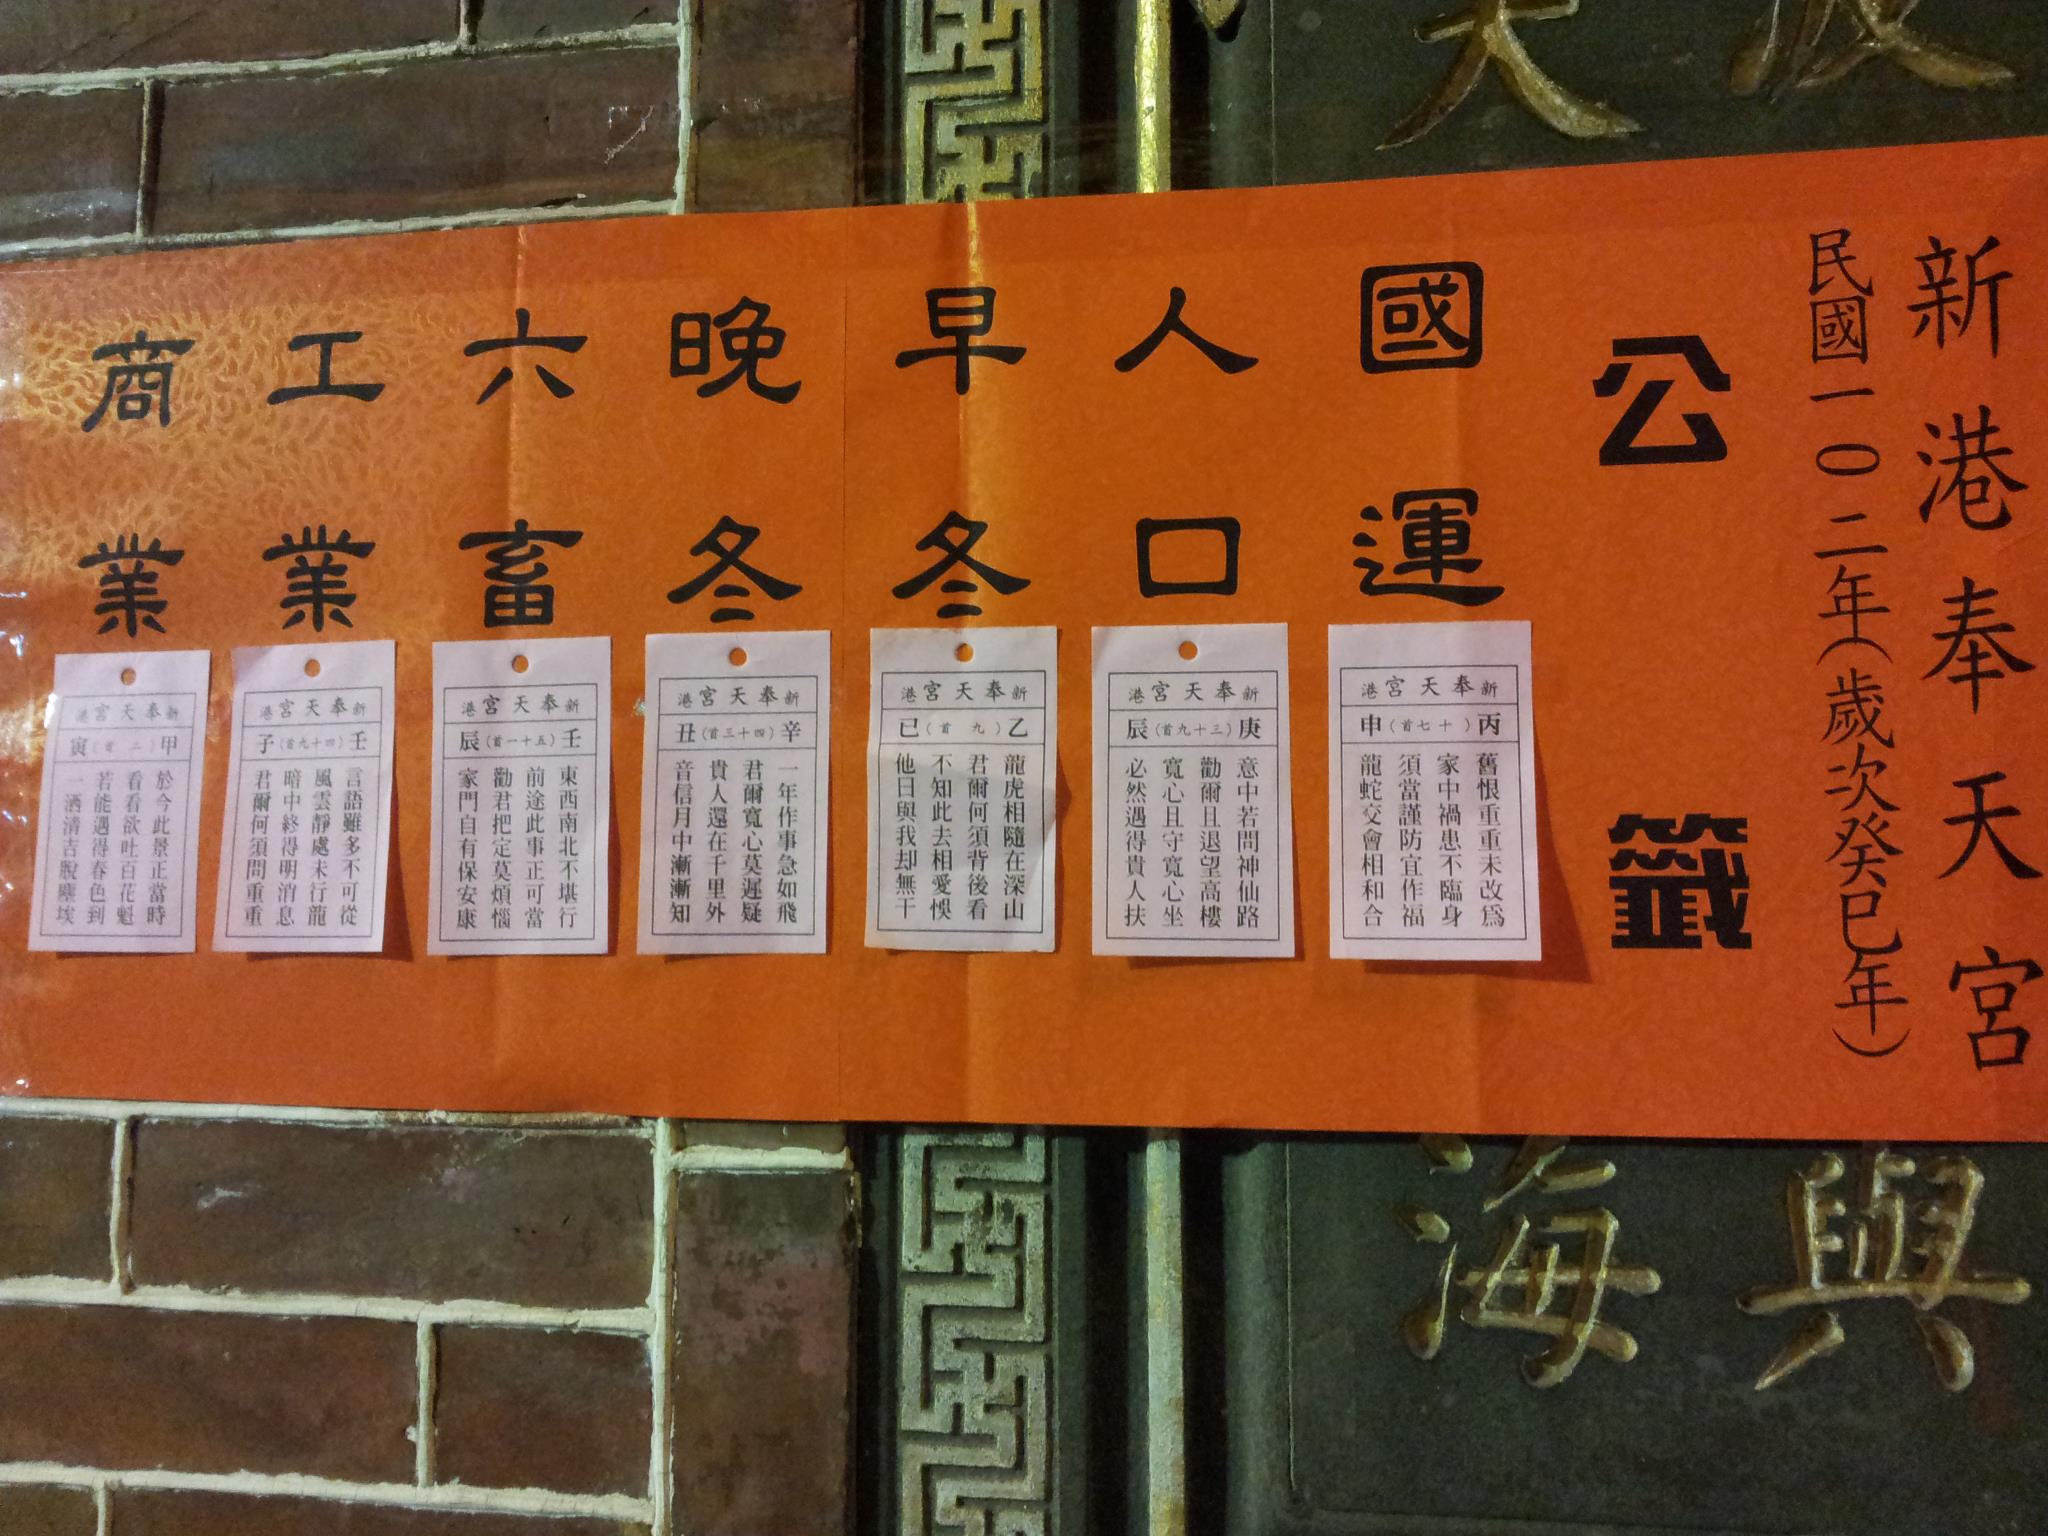 新港奉天宮
民國一〇二年(歲次癸巳年)
公籤
國運
新港奉天宮
丙(十七首)申
舊恨重重未改為
家中禍患不臨身
須當謹防宜作福
龍蛇交會相和合
人口
新港奉天宮
庚(三十九首)辰
意中若問神仙路
勸爾且退望高樓
寬心且守寬心坐
必然遇得貴人扶
早冬
新港奉天宮
乙(九首)巳
龍虎相隨在深山
君爾何須背後看
不知此去相愛悞
他日與我却無干
晚冬
新港奉天宮
辛(四十三首)丑
一年作事急如飛
君爾寬心莫遲疑
貴人還在千里外
音信月中漸漸知
六畜
新港奉天宮
壬(五十一首)辰
東西南北不堪行
前途此事正可當
勸君把定莫煩惱
家門自有保安康
工業
新港奉天宮
壬(四十九首)子
言語雖多不可從
風雲靜處未行龍
暗中終得明消息
君爾何須問重重
商業
新港奉天宮
甲(二首)寅
於今此景正當時
看看欲吐百花魁
若能遇得春色到
一洒清吉脫塵埃
與
海